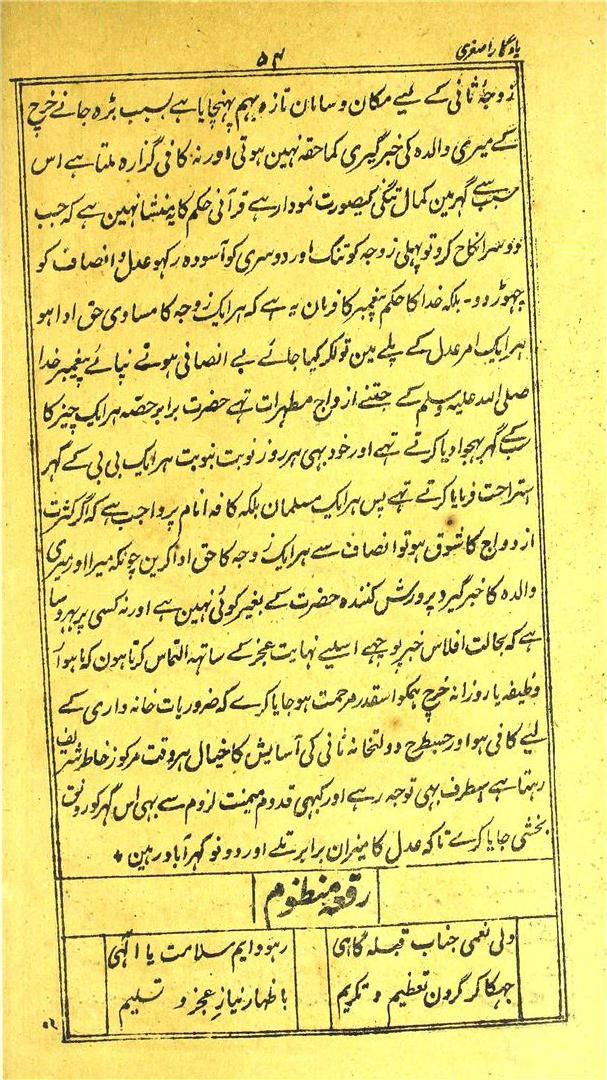 یادگار اصغری
۵۴
زوجۂ ثانی کے لیے مکان و سامان تازہ بہم پہنچایا ہے بسبب بڑہ جانے خرچ
کے میری والدہ کی خبر گیری کما حقہ نہین ہوتی اور نہ کافی گزارہ ملتا ہے اس
سبب سے گہر مین کمال تنگی کیصورت نمودار ہے قرآنی حکم کا یہ منشا نہین ہے کہ جب
دوسرا نکاح کرو تو پہلی زوجہ کو تنگ اور دوسری کو آسودہ رکہو عدل و انصاف کو
چہوڑ دو۔ بلکہ خدا کا حکم پیغمبر کا فرمان یہ ہے کہ ہر ایک زوجہ کا مساوی حق ادا ہو
ہر ایک امر عدل کے پلے مین تولکر کیا جائے بے انصافی ہونے نپائے پیغمبر خدا
صلی اللہ علیہ وسلم کے جتنے ازواج مطہرات تہے حضرت برابر حصہ ہر ایک چیز کا
سب کے گہر بہجوا دیا کرتے تہے اور خود بہی ہر روز نوبت بنوبت ہر ایک بی بی کے گہر
استراحت فرمایا کرتے تہے پس ہر ایک مسلمان بلکہ کافہ انام پر واجب ہے کہ اگر کثرت
ازدواج کا شوق ہو تو انصاف سے ہر ایک زوجہ کا حق ادا کرین چونکہ میرا اور میری
والدہ کا خبر گیر و پرورش کنندہ حضرت کے بغیر کوئی نہین ہے اور نہ کسی پر بہروسا
ہے کہ بحالت افلاس خبر پوچہے اسلیے نہایت عجز کے ساتہہ التماس کرتا ہون کہ ماہوار
وظیفہ یا روزانہ خرچ ہمکو اسقدر مرحمت ہو جایا کرے کہ ضروریات خانہ داری کے
لیے کافی ہو اور جسطرح دولتخانہ ثانی کی آسایش کا خیال ہر وقت مرکوز خاطر شریف
رہتا ہے اسطرف بہی توجہ رہے اور کبہی قدوم میمنت لزوم سے بہی اس گہر کو رونق
بخشی جایا کرے تاکہ عدل کا میزان برابر تلے اور دونو گہر آباد رہین
رقعہ منظوم
ولی نعمی جناب قبلہ گاہی رہو دایم سلامت یا الٰہی
جہکا کر گردن تعظیم و تکریم باظہار نیاز عجز و تسلیم